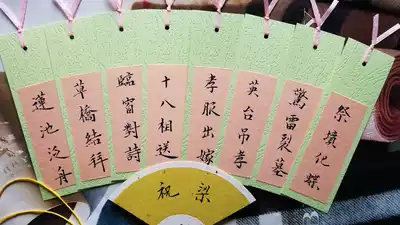 蓮池泛舟
草橋結拜
臨窗對詩
十八相送
孝服出嫁
英台吊孝
驚雷裂墓
祭墳化蝶
梁祝